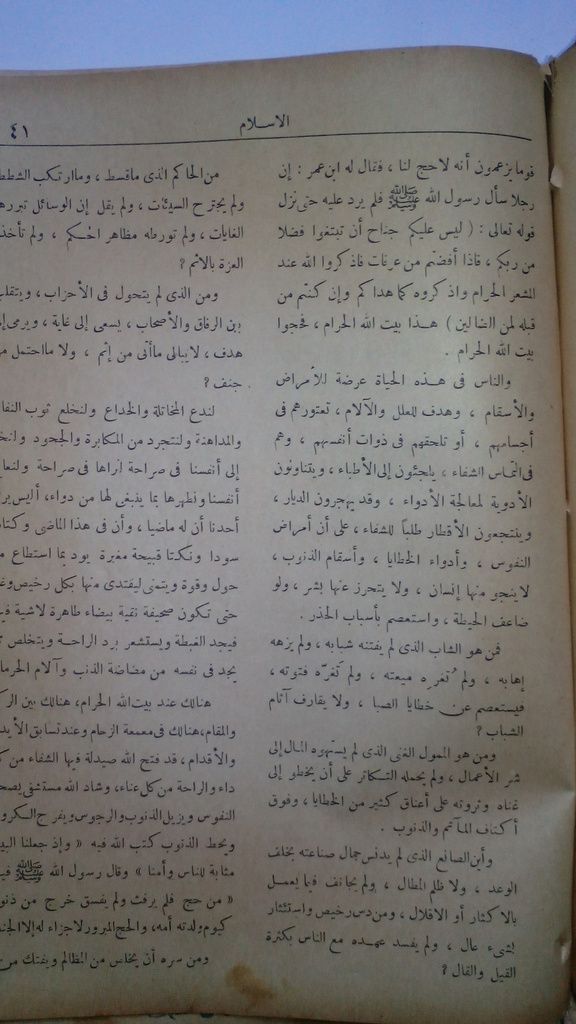 الاسلام
٤١
قوما يزعمون أنه لاحج لنا ، فقال له ابن عمر : إن
رجلا سأل رسول الله ﷺ فلم يرد عليه حتى نزل
قوله تعالى : ( ليس عليكم جناح أن تبتغوا فضلا
من ربكم ، فاذا أفضتم من عرفات فاذكروا الله عند
المشعر الحرام واذكروه كما هداكم وإن كنتم من
قبله لمن الضالين ) هذا بيت الله الحرام ، فحجوا
بيت الله الحرام .
والناس فى هذه الحياة عرضة للأمراض
والأسقام ، وهدف للعلل والآلام ، تعتورهم فى
أجسامهم ، أو تلحقهم فى ذوات أنفسهم ، وهم
فى التماس الشفاء ، يلجئون إلى الأطباء ، ويتناولون
الأدوية لمعالجة الأدواء ، وقد يهجرون الديار ،
وينتجعون الأقطار طلباً للشفاء ، على أن أمراض
النفوس ، وأدواء الخطايا ، وأسقام الذنوب ،
لا ينجو منها إنسان ، ولا يتحرز عنها بشر ، ولو
ضاعف الحيطة ، واستعصم بأسباب الحذر .
فمن هو الشاب الذى لم يفتنه شبابه ، ولم يزهه
إهابه ، ولم تغره ميعته ، ولم تغرّه فتوته ،
فيستعصم عن خطايا الصبا ، ولا يقارف آثام
الشباب ؟
ومن هو الممول الغنى الذى لم يستهوه المال إلى
شر الأعمال ، ولم يحمله التكاثر على أن يخطو إلى
غناه وثروته على أعناق كثير من الخطايا ، وفوق
أكتاف المآثم والذنوب .
وأين الصانع الذى لم يدنس جمال صناعته بخلف
الوعد ، ولا ظلم المطال ، ولم يجانف فيما يعمل
بالاكثار أو الاقلال ، ومن دس رخيص واستئثار
بشىء عال ، ولم يفسد عهده مع الناس بكثرة
القيل والقال ؟
من الحاكم الذى ماقسط ، وما ارتكب الشطط
ولم يجترح السيئات ، ولم يقل إن الوسائل تبررها
الغايات ، ولم تورطه مظاهر الحكم ، ولم تأخذه
العزة بالاثم ؟
ومن الذى لم يتحول فى الأحزاب ، ويتقلب
بين الرفاق والأصحاب ، يسعى إلى غاية ، ويرمى إلى
هدف ، لا يبالى ما أتى من إثم ، ولا ما احتمل من
جنف ؟
لندع المخاتلة والخداع ولنخلع ثوب النفاق
والمداهنة ولنتجرد من المكابرة والجحود
إلى أنفسنا فى صراحة لنراها فى صراحة
أنفسنا ونطهرها بما ينبغى لها من دواء، أليس يرى
أحدنا أن له ماضيا ، وأن فى هذا الماضى
سودا ونكتا قبيحة مغبرة يود بما استطاع من
حول وقوة ويتمنى ليفتدى منها بكل رخيص
حتى تكون صحيفة نقية بيضاء طاهرة لاشية فيها
فيجد الغبطة ويستشعر برد الراحة ويتخلص مما
يجد فى نفسه من مضاضة الذنب وآلام الحرمان
هنالك عند بيت الله الحرام، هنالك بين الركن
والمقام، هنالك فى معمعة الزحام وعند تسابق الأيدى
والأقدام، قد فتح الله صيدلة فيها الشفاء من كل
داء والراحة من كل عناء، وشاد الله مستشفى يصحح
النفوس ويزيل الذنوب والرجوس ويفرج الكروب
ويحط الذنوب كتب الله فيه « وإذ جعلنا البيت
مثابة للناس وأمنا » وقال رسول الله ﷺ فيه
« من حج فلم يرفث ولم يفسق خرج من ذنوبه
كيوم ولدته أمه، والحج المبرور لاجزاء له إلا الجنة
ومن سره أن يخلص من المظالم ويفتك من